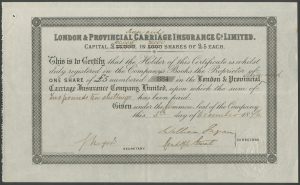 LONDON & PROVINCIAL CARRIAGE INSURANCE Co LIMITED.
CAPITAL, IN SHARES OF £5 EACH.
This is to Certify that the Holder of this Certificate is whilst
duly registered in the Company's Books the Proprietor of
ONE SHARE of £5 numbered in the London & Provincial
Carriage Insurance Company Limited, upon which the sum of
Two pounds Ten shillings has been paid.
Given under the Common Seal of the Company
this 5th day of December
SECRETARY
DIRECTORS